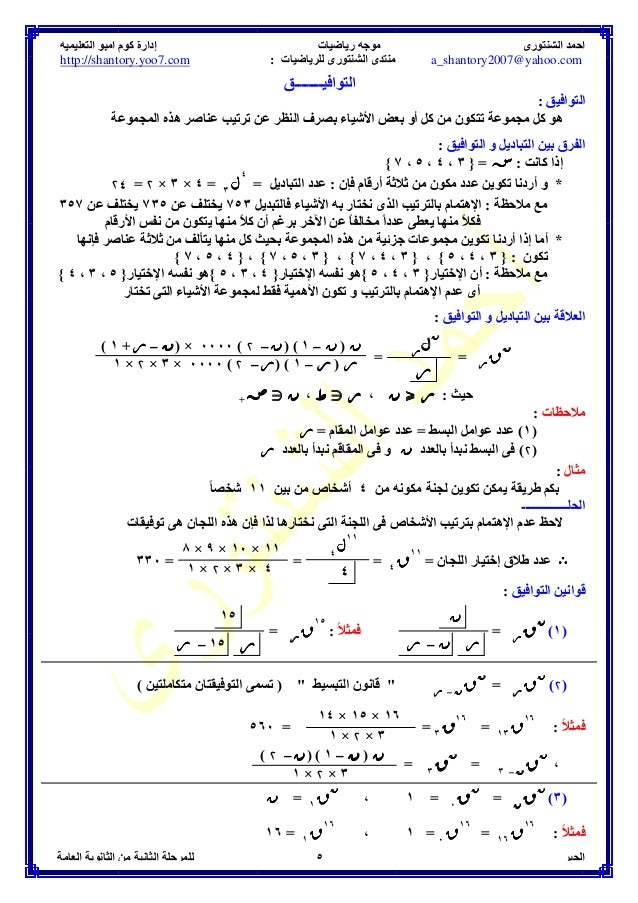 احمد الشنتورى موجه رياضيات إدارة كوم امبو التعليميه
a_shantory2007@yahoo.com منتدى الشنتورى للرياضيات : http://shantory.yoo7.com
التوافيـــــــق
التوافيق :
هو كل مجموعة تتكون من كل أو بعض الأشياء بصرف النظر عن ترتيب عناصر هذه المجموعة
الفرق بين التباديل و التوافيق :
إذا كانت : سـ = { ٣ ، ٤ ، ٥ ، ٧ }
* و أردنا تكوين عدد مكون من ثلاثة أرقام فإن : عدد التباديل = ⁴ل₃ = ٤ × ٣ × ٢ = ٢٤
مع ملاحظة : الإهتمام بالترتيب الذى نختار به الأشياء فالتبديل ٧٥٣ يختلف عن ٧٣٥ يختلف عن ٣٥٧
فكلاً منها يعطى عدداً مخالفاً عن الآخر برغم أن كلاً منها يتكون من نفس الأرقام
* أما إذا أردنا تكوين مجموعات جزئية من هذه المجموعة بحيث كل منها يتألف من ثلاثة عناصر فإنها
تكون : { ٣ ، ٤ ، ٥ } ، { ٣ ، ٤ ، ٧ } ، { ٣ ، ٥ ، ٧ } ، { ٤ ، ٥ ، ٧ }
مع ملاحظة : أن الإختيار{ ٣ ، ٤ ، ٥ }هو نفسه الإختيار{ ٤ ، ٣ ، ٥ }هو نفسه الإختيار{ ٥ ، ٣ ، ٤ }
أى عدم الإهتمام بالترتيب و تكون الأهمية فقط لمجموعة الأشياء التى تختار
العلاقة بين التباديل و التوافيق :
ⁿقر = ⁿلر / ⌊ر = ن ( ن – ١ ) ( ن – ٢ ) ٠٠٠٠ × ( ن – ر + ١ ) / ر ( ر – ١ ) ( ر – ٢ ) ٠٠٠٠ × ٣ × ٢ × ١
حيث : ر ⩽ ن ، ر ∈ ط ، ن ∈ صـ+
ملاحظات :
(١) عدد عوامل البسط = عدد عوامل المقام = ر
(٢) فى البسط نبدأ بالعدد ن و فى المقاقم نبدأ بالعدد ر
مثال :
بكم طريقة يمكن تكوين لجنة مكونه من ٤ أشخاص من بين ١١ شخصاً
الحلـــــــــــــ
لاحظ عدم الإهتمام بترتيب الأشخاص فى اللجنة التى نختارها لذا فإن هذه اللجان هى توفيقات
∴ عدد طلاق إختيار اللجان = ¹¹ق₄ = ¹¹ل₄ / ⌊٤ = ١١ × ١٠ × ٩ × ٨ / ٤ × ٣ × ٢ × ١ = ٣٣٠
قوانين التوافيق :
(١) ⁿقر = ⌊ن / ⌊ر ⌊ن – ر فمثلاً : ¹⁵قر = ⌊١٥ / ⌊ر ⌊١٥ – ر
(٢) ⁿقر = ⁿقن – ر " قانون التبسيط " ( تسمى التوفيقتان متكاملتين )
فمثلاً : ¹⁶ق₁₃ = ¹⁶ق₃ = ١٦ × ١٥ × ١٤ / ٣ × ٢ × ١ = ٥٦٠
، ⁿقن – ٣ = ⁿق₃ = ن ( ن – ١ ) ( ن – ٢ ) / ٣ × ٢ × ١
(٣) ⁿقن = ⁿق₀ = ١ ، ⁿق₁ = ن
فمثلاً : ¹⁶ق₁₆ = ¹⁶ق₀ = ١ ، ¹⁶ق₁ = ١٦
الجبر ٥ للمرحلة الثانية من الثانوية العامة
أحمد الشنتورى